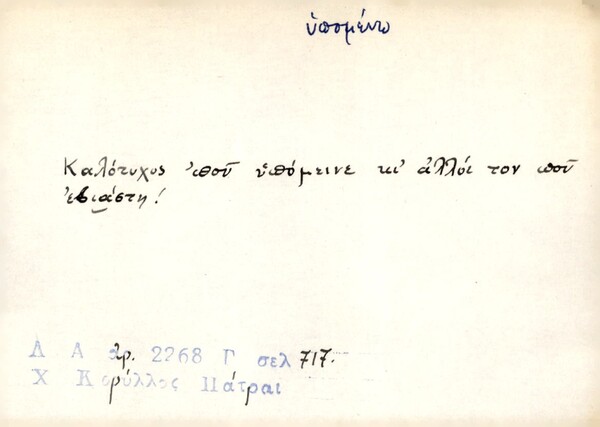 ὑπομένω
Καλότυχος ὁποῦ ὑπόμεινε κι' ἀλλοί τον ποῦ
ἐβιάστη!
Λ Α ἀρ. 2268 Γ σελ 717.
Χ Κορύλλος Πάτραι